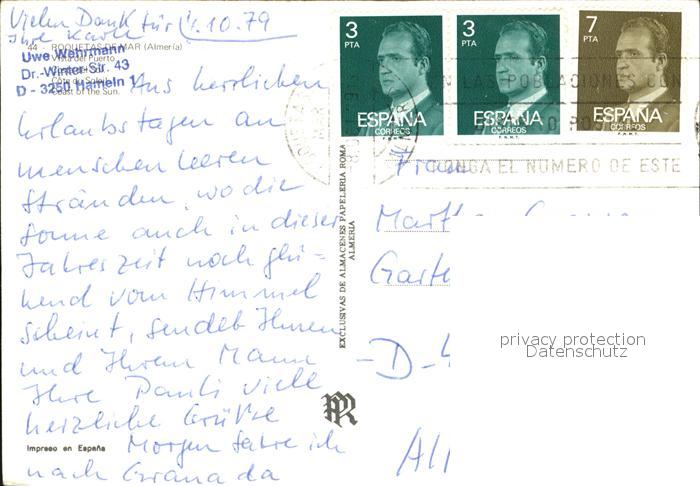 Vielen Dank für 4.10.79
Ihre Karte
44 - ROQUETAS DE MAR (Almería)
Vista del Puerto
Uwe Wehrmann
Dr.-Winter-Str. 43
D - 3250 Hameln 1
Coast of the Sun.
Aus herrlichen
Urlaubstagen an
menschenleeren
Stränden, wo die
Sonne auch in dieser
Jahreszeit noch glü-
hend vom Himmel
scheint, sendet Ihnen
und Ihrem Mann
Ihre Pauli viele
herzliche Grüße
Morgen fahre ich
nach Granada
Impreso en España
EXCLUSIVAS DE ALMACENES PAPELERIA ROMA
ALMERIA
3 PTA
ESPAÑA
CORREOS
F.N.M.T.
3 PTA
ESPAÑA
CORREOS
F.N.M.T.
7 PTA
ESPAÑA
CORREOS
F.N.M.T.
EN LAS POBLACIONES CON
PONGA EL NUMERO DE ESTE
Frau
Mart
Garte
-D-4
All
privacy protection
Datenschutz